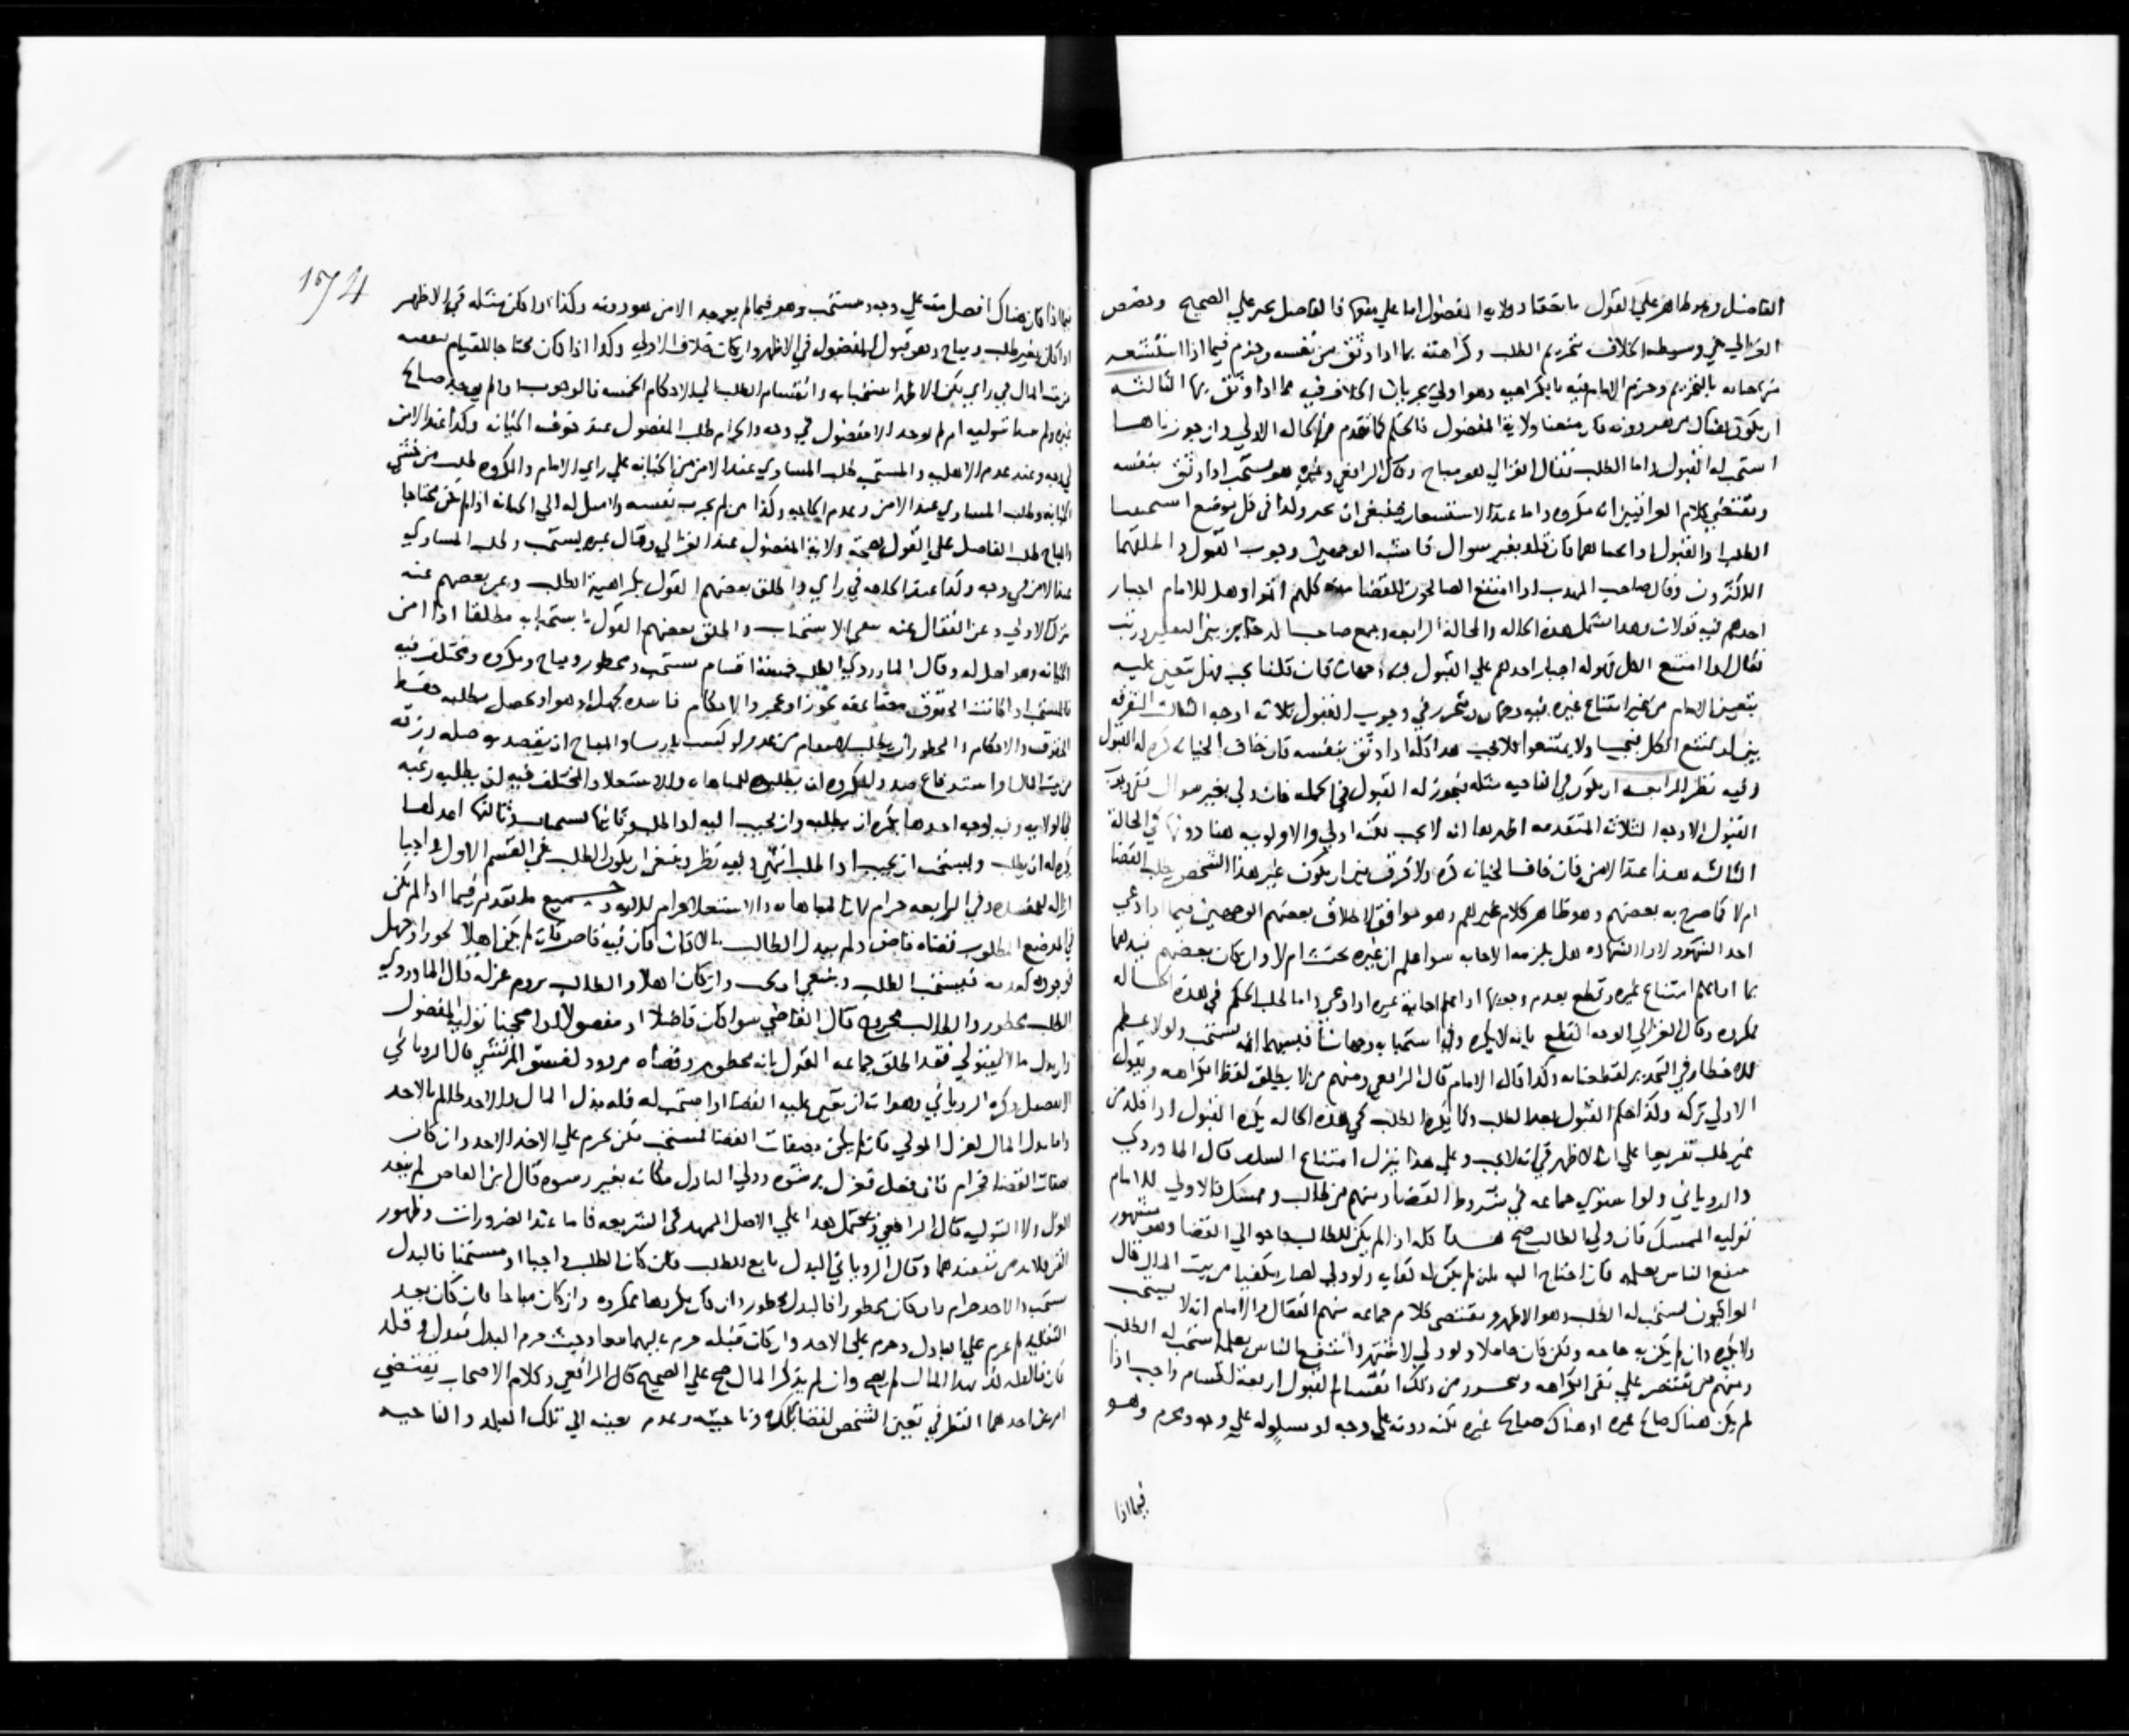 الفاضل وهو ظاهر علي القول بانعقاد ولاية المفضول اما علي منعها فالفاضل يجبر علي الصحيح وخصص
الغزالي في وسيطه الخلاف بتحريم الطلب وكراهته بما اذا وثق من نفسه وجزم فيما اذا استشعر
من نفسه بالتحريم وجزم الامام فيه بالكراهيه وهو اولي بجريان الخلاف فيه مما اذا وثق بها الثالثه
ان يكون هناك من هو دونه فان منعنا ولاية المفضول فالحكم كما تقدم في الحاله الاولي وان جوزناها
استحب له القبول واما الطلب فقال الغزالي هو مباح وقال الرافعي وغيره هو مستحب اذا وثق بنفسه
ويقتضي كلام العراقيين انه مكروه واما عند الاستشعار فينبغي ان يحرم ولها في كل موضع استحببنا
الطلب والقبول فان قلد بغير سوال فاشبه الوجهين وجوب القبول واطلقهما
الاكثرون وقال صاحب المهذب اذا امتنع الصالحون للقضا منه كلهم اثموا وهل للامام اجبار
احدهم فيه قولان وهذا يشمل هذه الحاله والحالة الرابعه وجمع صاحب الذخاير بين التعليلين ورتب
فقال اذا امتنع الكل فهل له اجبار احدهم علي القبول فيه وجهان فان قلنا يجب فهل يتعين عليه
بتعيين الامام من غير امتناع غيره فيه وجهان وتحرر في وجوب القبول ثلاثه اوجه الثالث التفرقه
بين ان يمتنع الكل فيجب ولا يمتنعوا فلا يجب هذا كله اذا وثق بنفسه فان خاف الخيانه كره له القبول
وفيه نظر الرابعه ان يكون في الناحيه مثله فيجوز له القبول في الجمله فان ولي بغير سوال ففي وجوب
القبول الاوجه الثلاثه المتقدمه اظهرها انه لا يجب لكنه اولي والاولويه هنا دونها في الحالة
الثالثه هذا عند الامن فان خاف الخيانه كره ولا فرق بين ان يكون غير هذا الشخص يطلب القضا
ام لا كما صرح به بعضهم وهو ظاهر كلام غيرهم وهو موافق لاطلاق بعضهم الوجهين فيما اذا دعي
احد الشهود لاداء الشهاده هل يلزمه الاجابه سوا علم ان غيره يجيب ام لا وان كان بعضهم قيدهما
بما اذا لم يعلم امتناع غيره وقطع بعدم وجوبها اذا علم اجابة غيره اذا دعي واما طلب الحكم في هذه الحاله
فمكروه وقال الغزالي الوجه القطع بانه لا يكره وفي استحبابه وجهان اشبههما انه يستحب ولولا عظم
الاخطار في التحذير لقطعنا به وكذا قال الامام قال الرافعي ومنهم من لا يطلق لفظ الكراهه ويقول
الاولي تركه وكذا حكم القبول بعد الطلب وكما يكره الطلب في هذه الحاله يكره القبول اذا قلد من
غير طلب تفريعا علي الاظهر في انه لا يجب وعلي هذا ينزل امتناع السلف قال الماوردي
والروياني ولو استوي جماعه في شروط القضا ومنهم من طالب وممسك فالاولي للامام
توليه الممسك فان ولي الطالب صح هذا كله اذا لم يكن للطالب حاجه الي القضا وهو مشهور
ينفع الناس بعلمه فان احتاج اليه بان لم يكن له كفايه ولو ولي لصار مكفيا من بيت المال فقال
العراقيون يستحب له الطلب وهو الاظهر ويقتضي كلام جماعه منهم القفال والامام انه لا يستحب
ولا يكره وان لم يكن به حاجه ولكن كان خاملا ولو ولي لاشتهر وانتفع الناس بعلمه استحب له الطلب
ومنهم من يقتصر علي نفي الكراهه ويتحرر من ذلك انقسام القبول اربعة اقسام واجب اذا
لم يكن هناك صالح غيره او هناك صالح غيره لكنه دونه علي وجه او مساو له علي وجه ومحرم وهو
فيما اذا
174
فيما اذا كان هناك افضل منه علي وجه ومستحب وهو فيما لم يوجد الا من هو دونه وكذا اذا كان مثله في الاظهر
اذا كان بغير طلب ومباح وهو قبول المفضول في الاظهر وان كان خلاف الاولي وكذا اذا كان محتاجا للقيام بنفسه
من بيت المال في راي لكن الاظهر استحبابه وانقسام الطلب الي الاحكام الخمسه فالوجوب اذا لم يوجد صالح
غيره ولم يوجد الا مفضول في وجه والحرام طلب المفضول عند خوف الخيانه وكذا عند الامن
في وجه وعند عدم الاهليه والمستحب طلب المساوي عند الامن من الخيانه علي راي الامام والمكروه طلب من خشي
الخيانه وطلب المساوي عند الامن وعدم الحاجه وكذا من لم يجرب نفسه ولا ميل له الي الخيانه اذا لم يكن محتاجا
والمباح طلب الفاضل علي القول بصحة ولاية المفضول عند الغزالي وقال غيره يستحب وطلب المساوي
عند الامن في وجه وكذا عند الحاجه في راي واطلق بعضهم القول بكراهية الطلب وعبر بعضهم عنه
بترك الاولي وعن القفال عنه نفي الاستحباب واطلق بعضهم القول باستحبابه مطلقا اذا امن
الخيانه وهو اهل له وقال الماوردي الطلب خمسة اقسام مستحب ومحظور ومباح ومكروه ومختلف فيه
فالمستحب اذا كانت الحقوق مضاعة بجور او عجز والاحكام فاسده بجهل او هوي فيحصل بطلبه حفظ
الحقوق والاحكام والمحظور ان يطلب لانتقام من عدو او لكسب بارتشا والمباح ان يقصد به وصله ورزقه
من بيت المال او استدفاع ضرر والمكروه ان يطلبه للمباهاه والاستعلا والمختلف فيه ان يطلبه رغبه
في الولايه وفيه اوجه احدها يكره ان يطلبه وان يجيب اليه اذا طلب وثانيها يستحبان وثالثها احدهما
يكره له ان يطلب ويستحب ان يجيب اذا طلب انتهي وفيه نظر وينبغي ان يكون الطلب في القسم الاول واجبا
ازالة للمفسده وفي الرابعه حرام لان المباهاه والاستعلا حرام للآيه وجميع ما تقدم فيما اذا لم يكن
في الموضع المطلوب قضاه قاض ولم يبذل الطالب مالا فان كان فيه قاض فان لم يكن اهلا لجور او جهل
فوجوده كعدمه فيستحب الطلب وينبغي ان يجب وان كان اهلا والطالب يروم عزله قال الماوردي
الطلب محظور والطالب مجروح قال القاضي سوا كان فاضلا او مفضولا اذا صححنا تولية المفضول
وان بذل مالا ليتولي فقد اطلق جماعه القول بانه محظور وقضاه مردود لفسق المرتشي قال الروياني
التفصيل ذكره الروياني وهو ان تعين عليه القضا او استحب له فله بذل المال والاخذ ظالم بالاخذ
واما بذل المال لعزل المولي فان لم يكن بصفات القضا فيستحب لكن يحرم علي الاخذ الاخذ وان كان
بصفات القضا فحرام فان فعل فعزل برشوه وولي الباذل مكانه بغير رشوه قال ابن القاص لم ينفذ
العزل ولا التوليه قال الرافعي ويحتمل هذا علي الاصل الممهد في الشريعه فاما عند الضرورات وظهور
الفتن فلا بد من تنفيذهما وقال الروياني البذل تابع للطلب فان كان الطلب واجبا او مستحبا فالبذل
مستحب والاخذ حرام وان كان محظورا فالبذل محظور وان كان مكروها فمكروه وان كان مباحا فان كان بعد
التقليد لم يحرم علي الباذل وحرم علي الاخذ وان كان قبله حرم عليهما معا وحيث حرم البذل فبذل وقلد
فان قال قلدتك بهذا المال لم يصح وان لم يذكر المال صح علي الصحيح قال الرافعي وكلام الاصحاب يقتضي
امرين احدهما النظر في تعين الشخص لقضا بلده وناحيته وعدم تعينه الي تلك البلد والناحيه